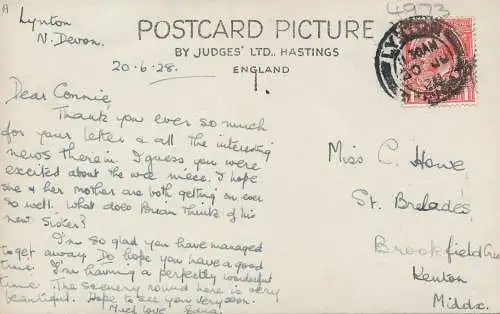 A
Lynton
N. Devon.
4973
POSTCARD PICTURE
BY JUDGES' LTD., HASTINGS
ENGLAND
20-6-28.
Dear Connie,
Thank you ever so much
for your letter & all the interesting
news therein. I guess you were
excited about the wee niece. I hope
she & her mother are both getting on ever
so well. What does Brian think of his
new sister?
I'm so glad you have managed
to get away. Do hope you have a good
time. I'm having a perfectly wonderful
time. The scenery round here is very
beautiful. Hope to see you very soon.
Much love Edna.
LYNTON
Miss C. Howe,
St. Brelades,
Brookfield
Kenton
Middx.